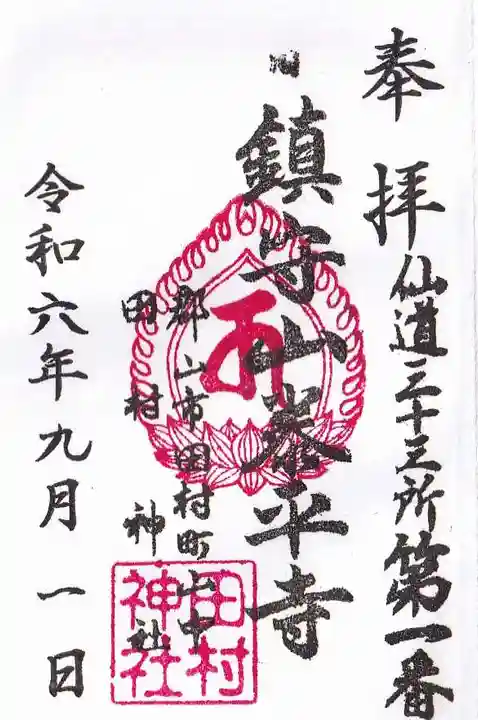 奉拝
仙道三十三所第一番
旧
鎮守山泰平寺
郡山市田村町山中
田村神社
田村神社
令和六年九月一日